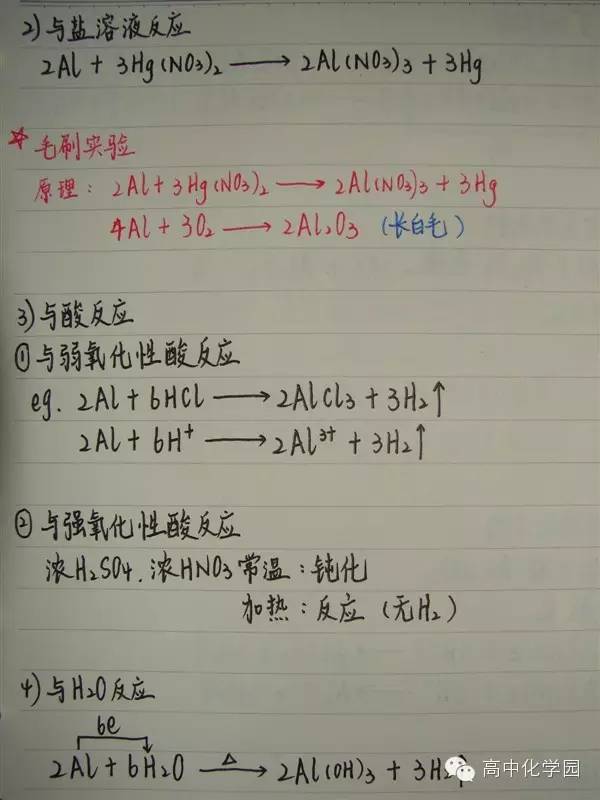 2) 与盐溶液反应
2Al + 3Hg(NO3)2 ⟶ 2Al(NO3)3 + 3Hg
☆ 毛刷实验
原理: 2Al + 3Hg(NO3)2 ⟶ 2Al(NO3)3 + 3Hg
4Al + 3O2 ⟶ 2Al2O3 (长白毛)
3) 与酸反应
① 与弱氧化性酸反应
eg. 2Al + 6HCl ⟶ 2AlCl3 + 3H2↑
2Al + 6H⁺ ⟶ 2Al³⁺ + 3H2↑
② 与强氧化性酸反应
浓H2SO4. 浓HNO3 常温: 钝化
加热: 反应 (无H2)
4) 与H2O反应
6e
2Al + 6H2O —△→ 2Al(OH)3 + 3H2↑
高中化学园